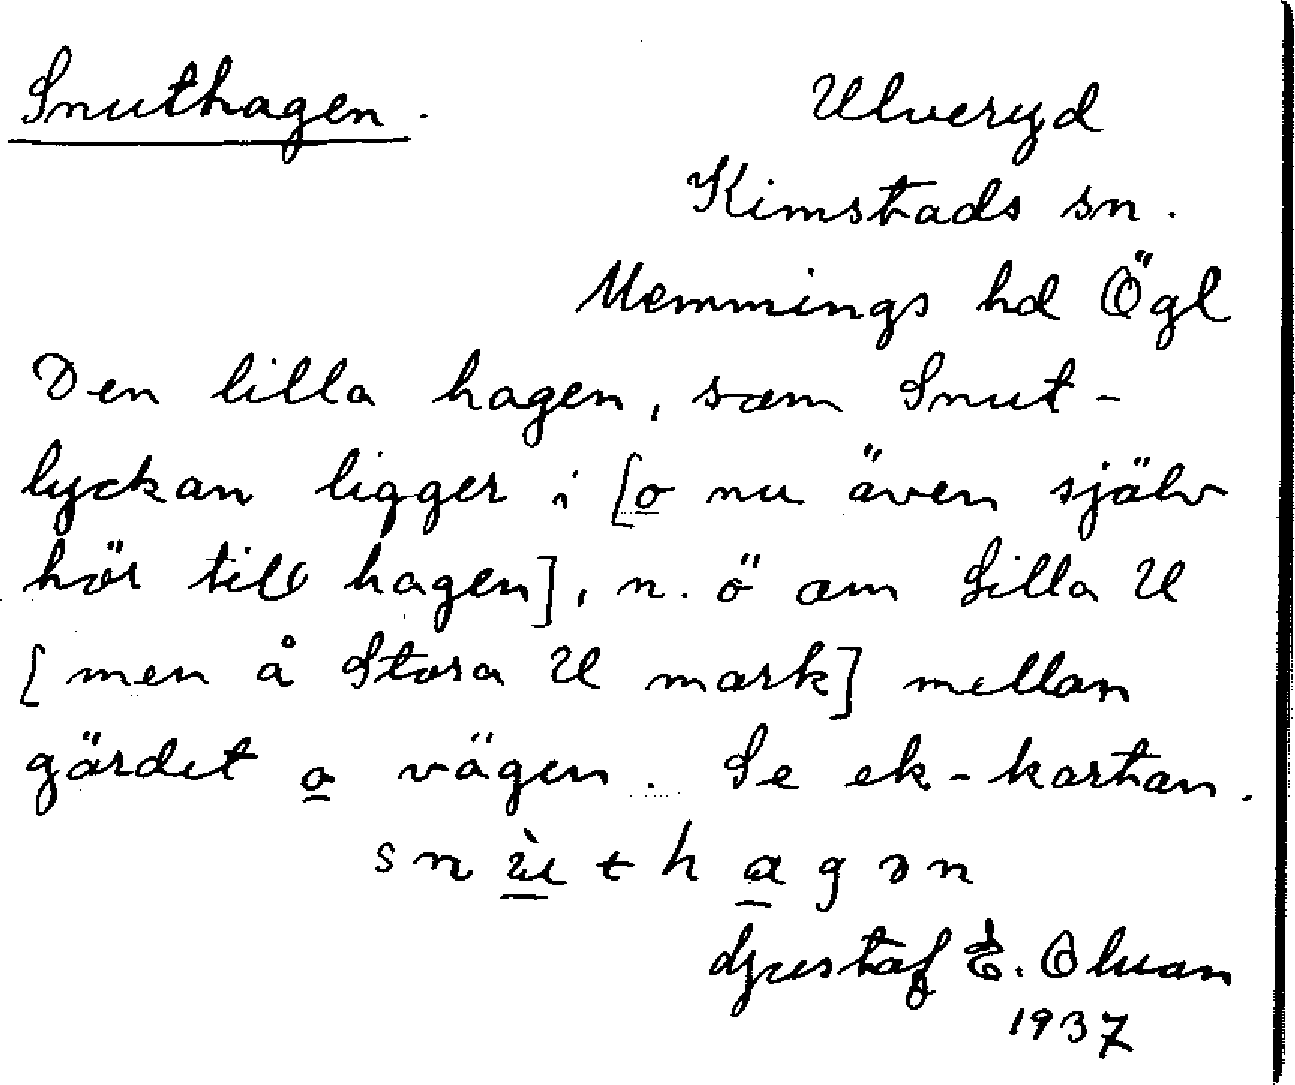 Snuthagen.
Ulveryd
Kimstads sn.
Memmings hd Ögl
Den lilla hagen, som Snut-
lyckan ligger i [o nu även själv
hör till hagen], n. ö om Lilla U
[men å Stora U mark] mellan
gärdet o vägen. Se ek-kartan.
snùthagən
Gustaf E. Olson
1937